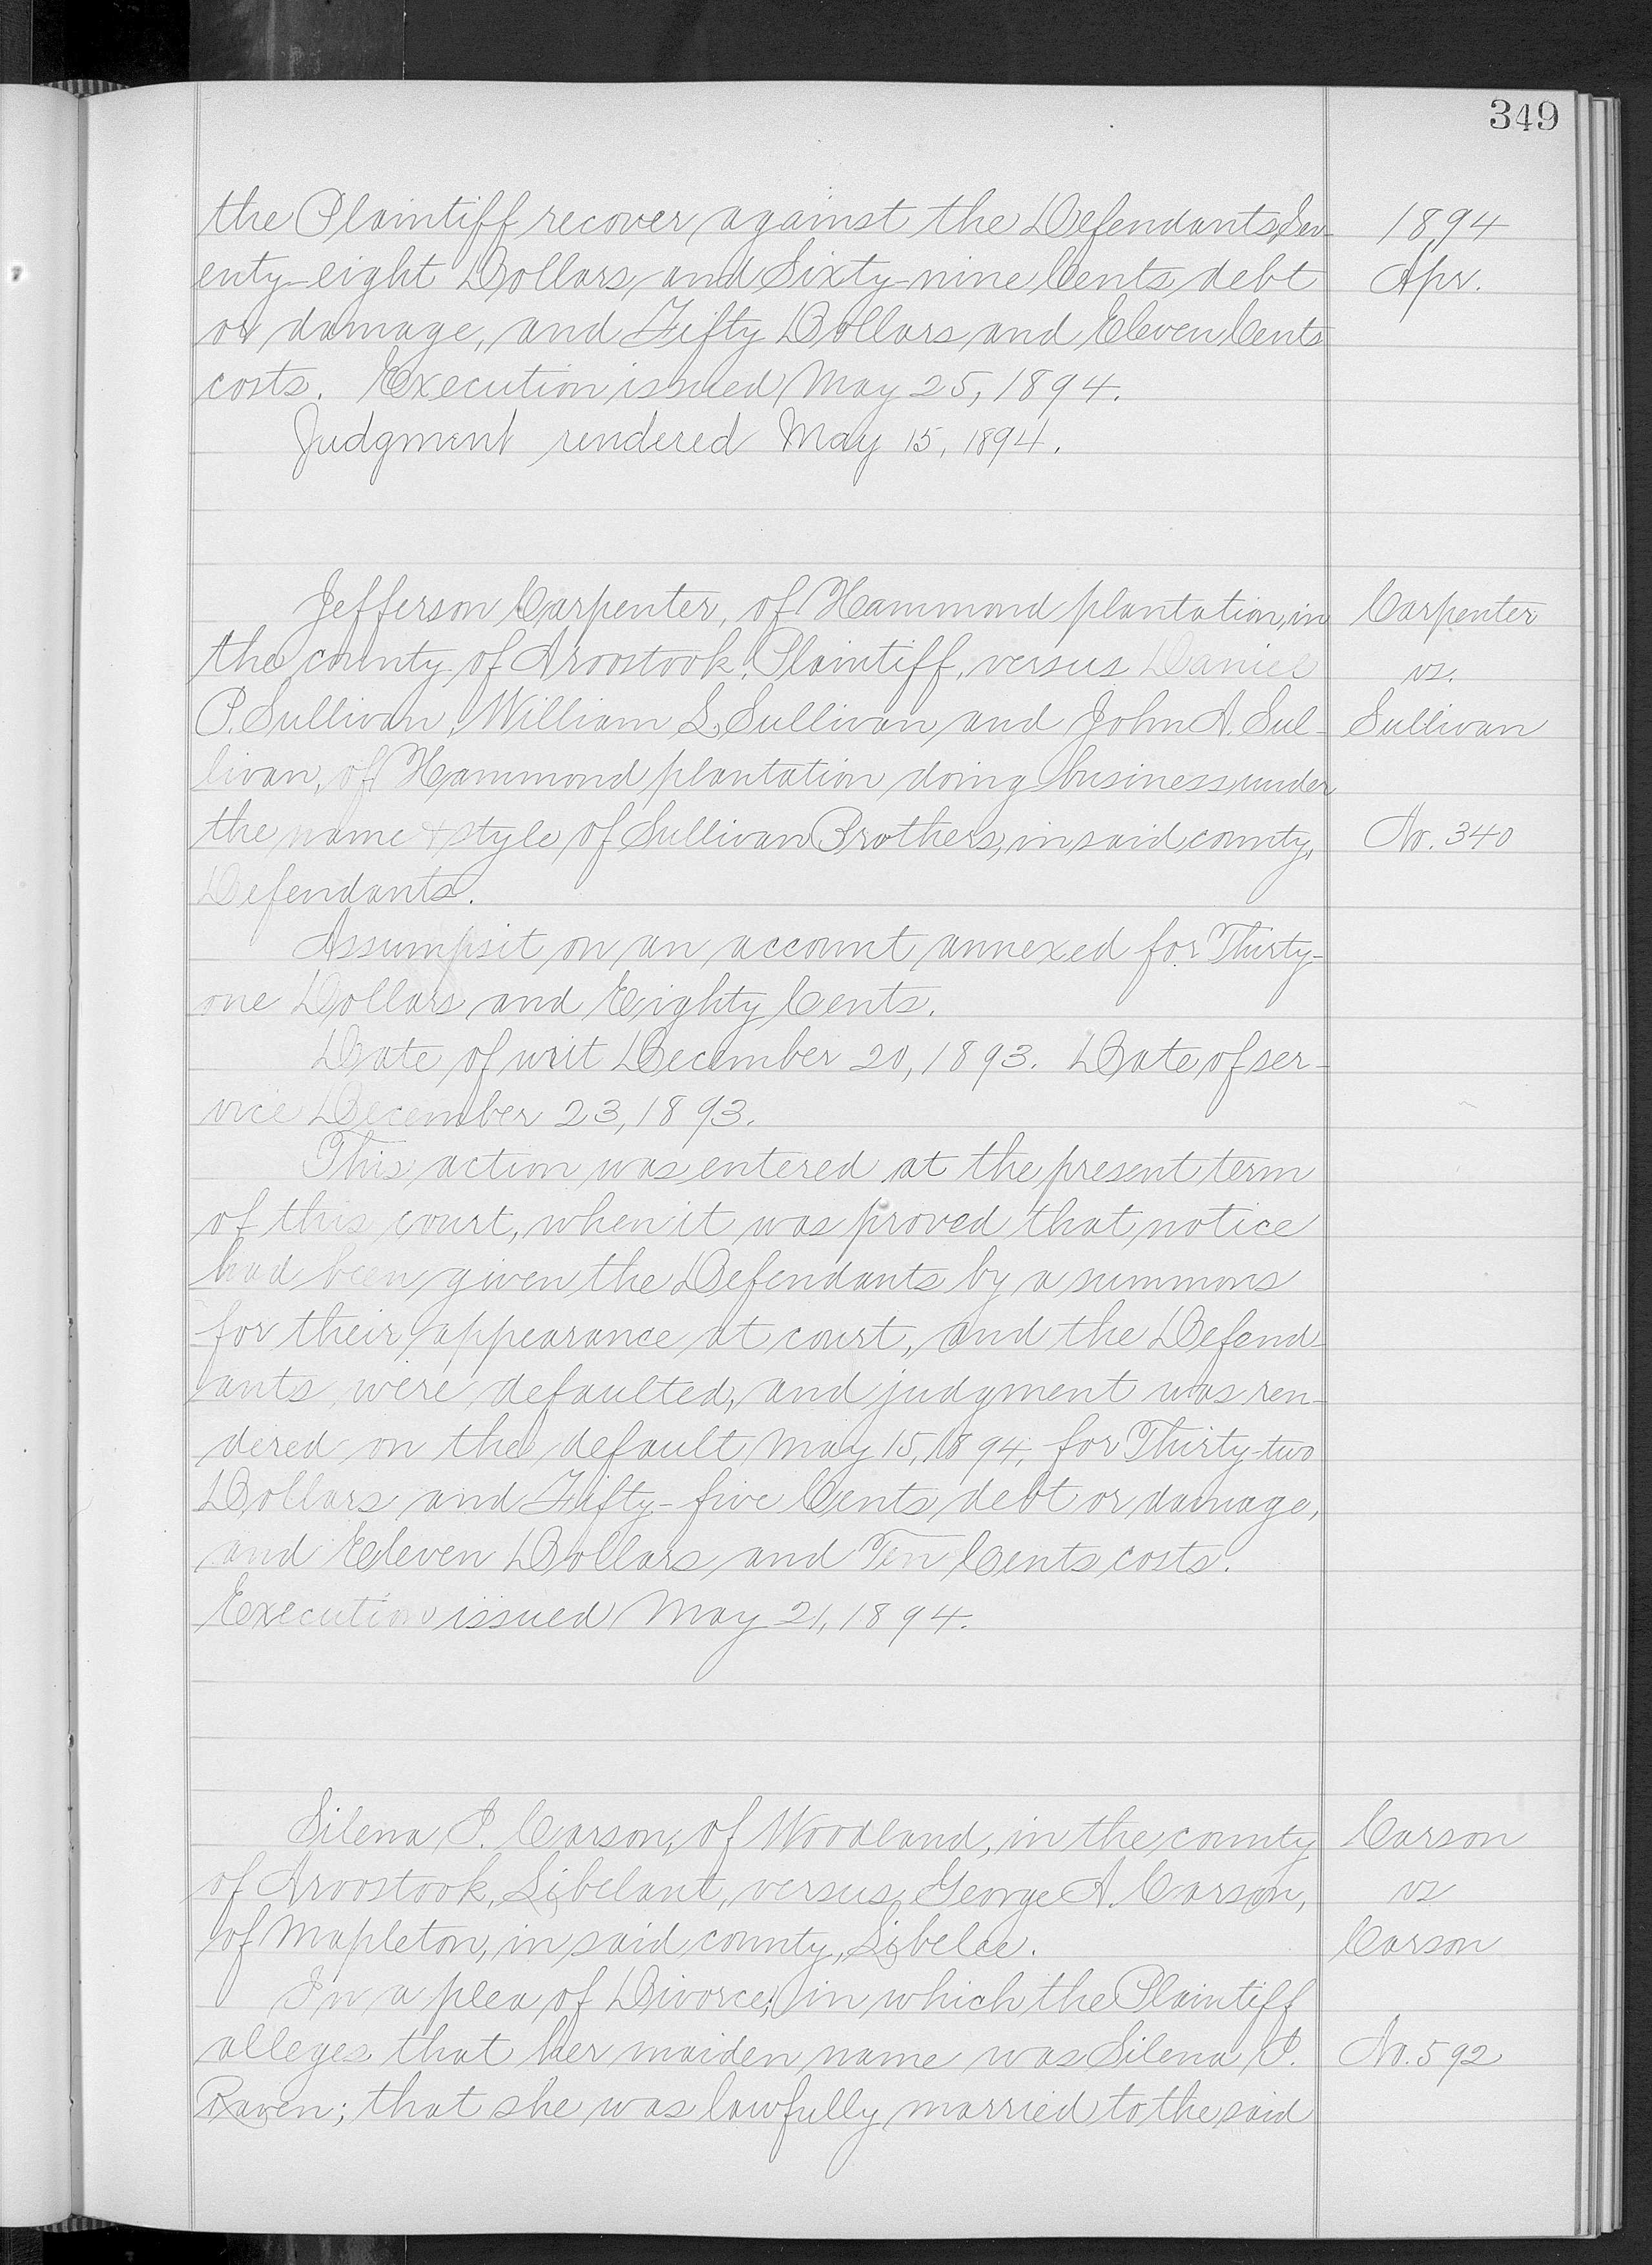 349
the Plaintiff recover against the Defendants Sev-
enty-eight Dollars and Sixty-nine Cents debt
or damage, and Fifty Dollars and Eleven Cents
costs. Execution issued May 25, 1894.
Judgment rendered May 15, 1894.
1894
Apr.
Jefferson Carpenter, of Hammond plantation, in
the county of Aroostook, Plaintiff, versus Daniel
P. Sullivan, William L. Sullivan and John A. Sul-
livan, of Hammond plantation doing business under
the name & style of Sullivan Brothers, in said county,
Defendants.
Carpenter
vs.
Sullivan
No. 340
Assumpsit on an account annexed for Thirty-
one Dollars and Eighty Cents.
Date of writ December 20, 1893. Date of ser-
vice December 23, 1893.
This action was entered at the present term
of this court, when it was proved that notice
had been given the Defendants by a summons
for their appearance at court, and the Defend-
ants were defaulted, and judgment was ren-
dered on the default May 15, 1894, for Thirty-two
Dollars and Fifty-five Cents debt or damage,
and Eleven Dollars and Ten Cents costs.
Execution issued May 21, 1894.
Silena P. Carson, of Woodland, in the county
of Aroostook, Libelant, versus George A. Carson,
of Mapleton, in said county, Libelee.
Carson
vs
Carson
In a plea of Divorce; in which the Plaintiff
alleges that her maiden name was Silena P.
Raven; that she was lawfully married to the said
No. 592